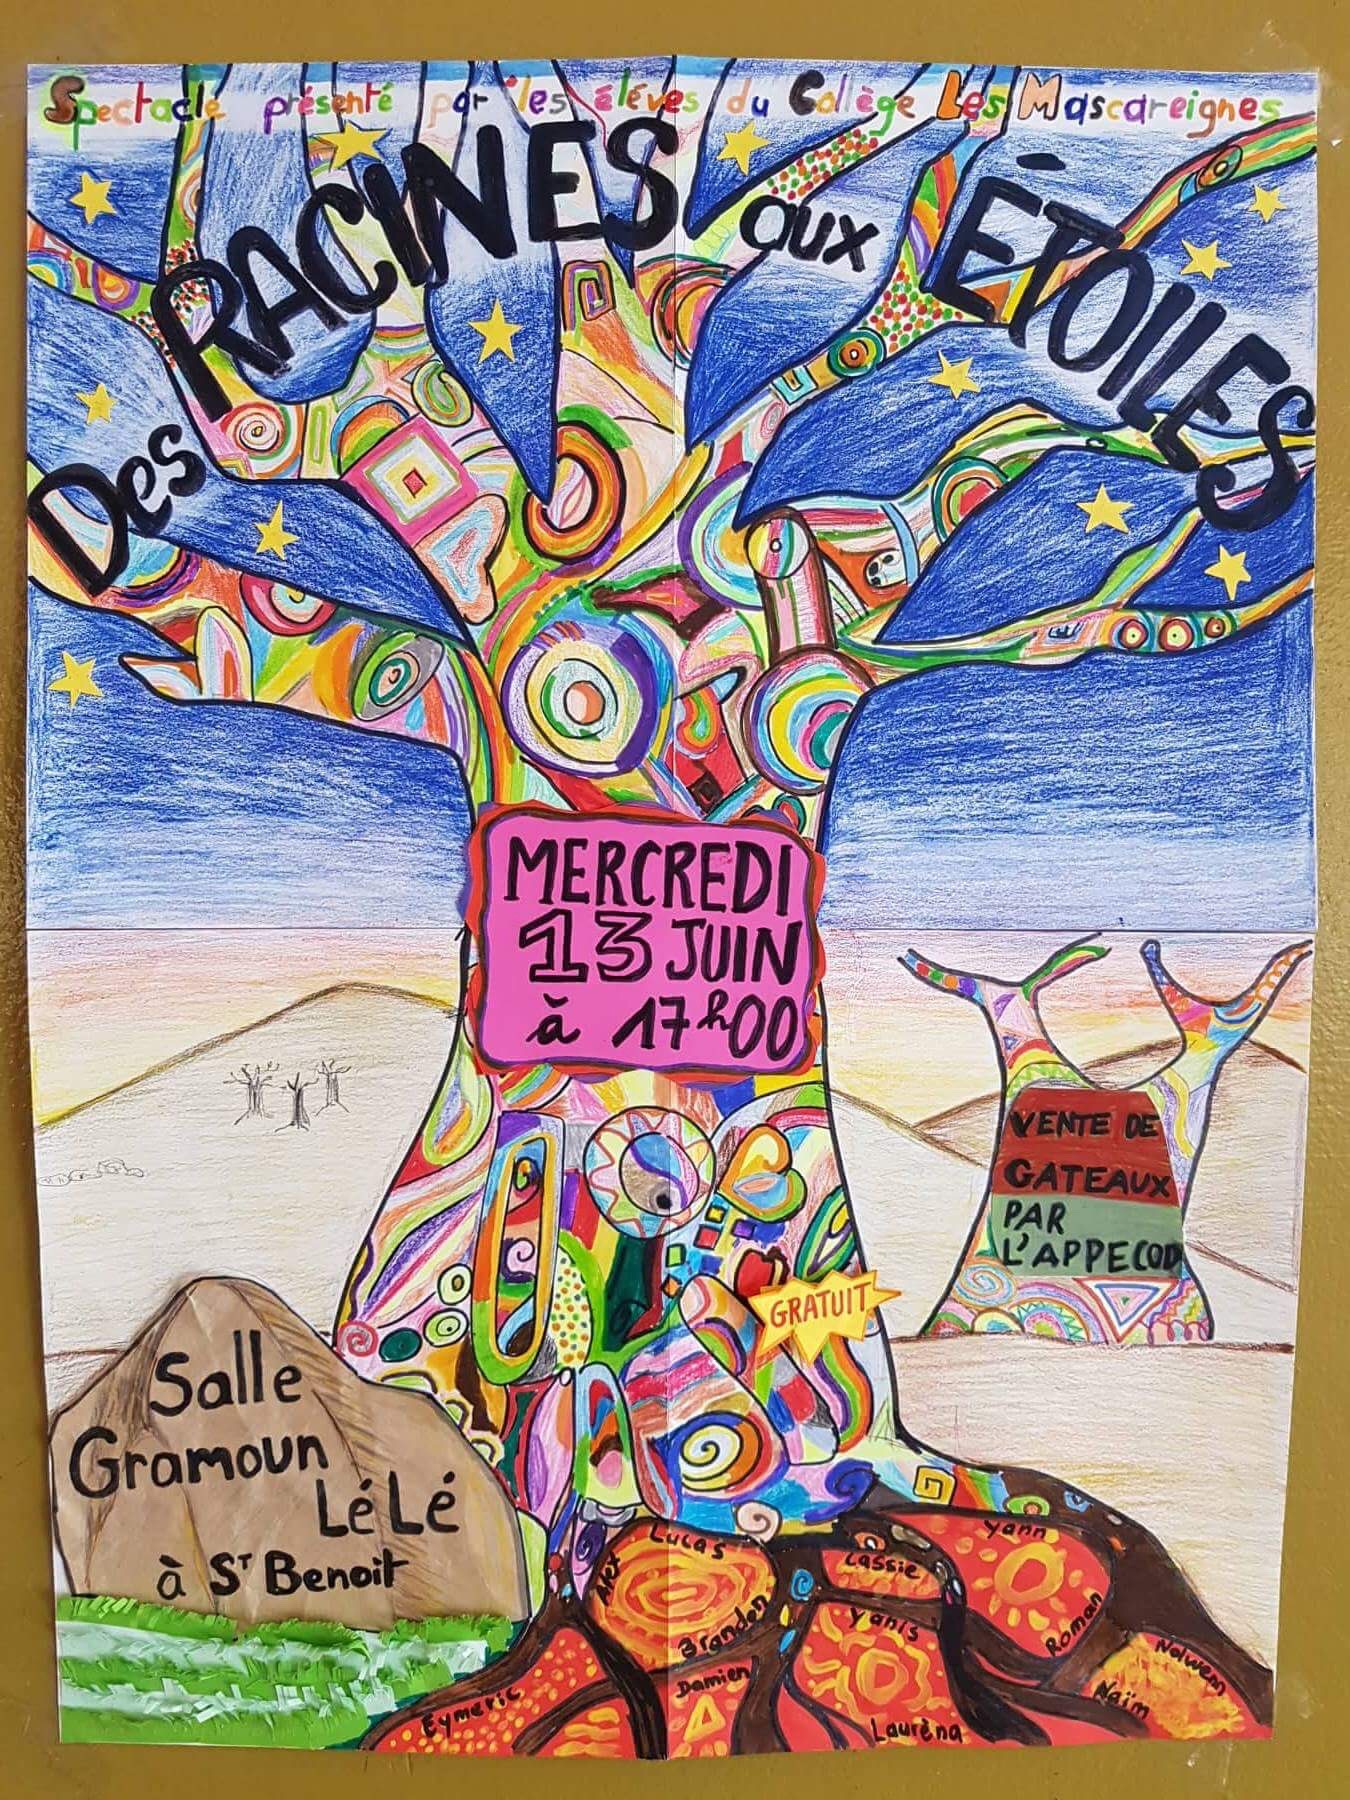 Spectacle présenté par les élèves du Collège Les Mascareignes
Des RACINES aux ÉTOILES
MERCREDI
13 JUIN
à 17h00
VENTE DE
GATEAUX
PAR
L'APPECOD
GRATUIT
Salle
Gramoun
LéLé
à ST Benoit
Lucas
Alex
Brandon
Lassie
Yann
Roman
Yanis
Damien
Eymeric
Laurèna
Nolwenn
Naïm